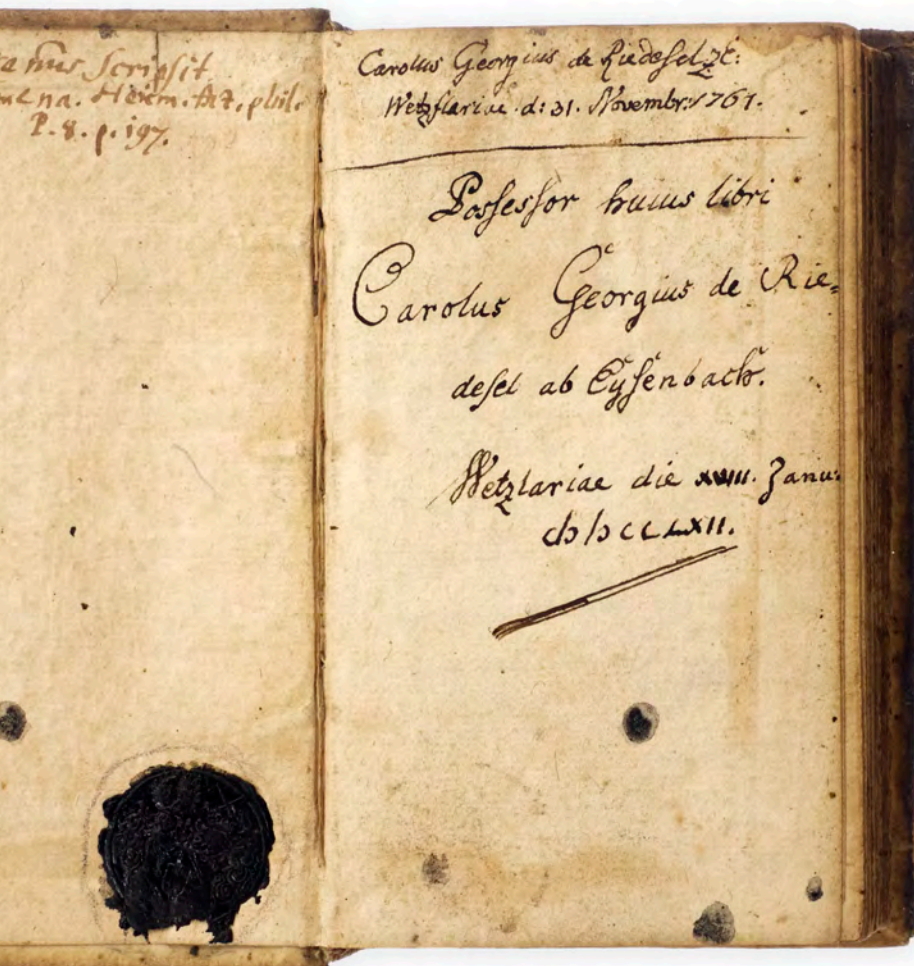 nus Scripsit
Heum. Act. phil.
P. 8. p. 197.
Carolus Georgius de Riedesel ꝛc:
Wetzflariae d: 31. Novembr: 1761.
Possessor huius libri
Carolus Georgius de Rie=
desel ab Eysenbach.
Wetzlariae die XVIII. Janu:
CIƆ IƆ CC LXII.